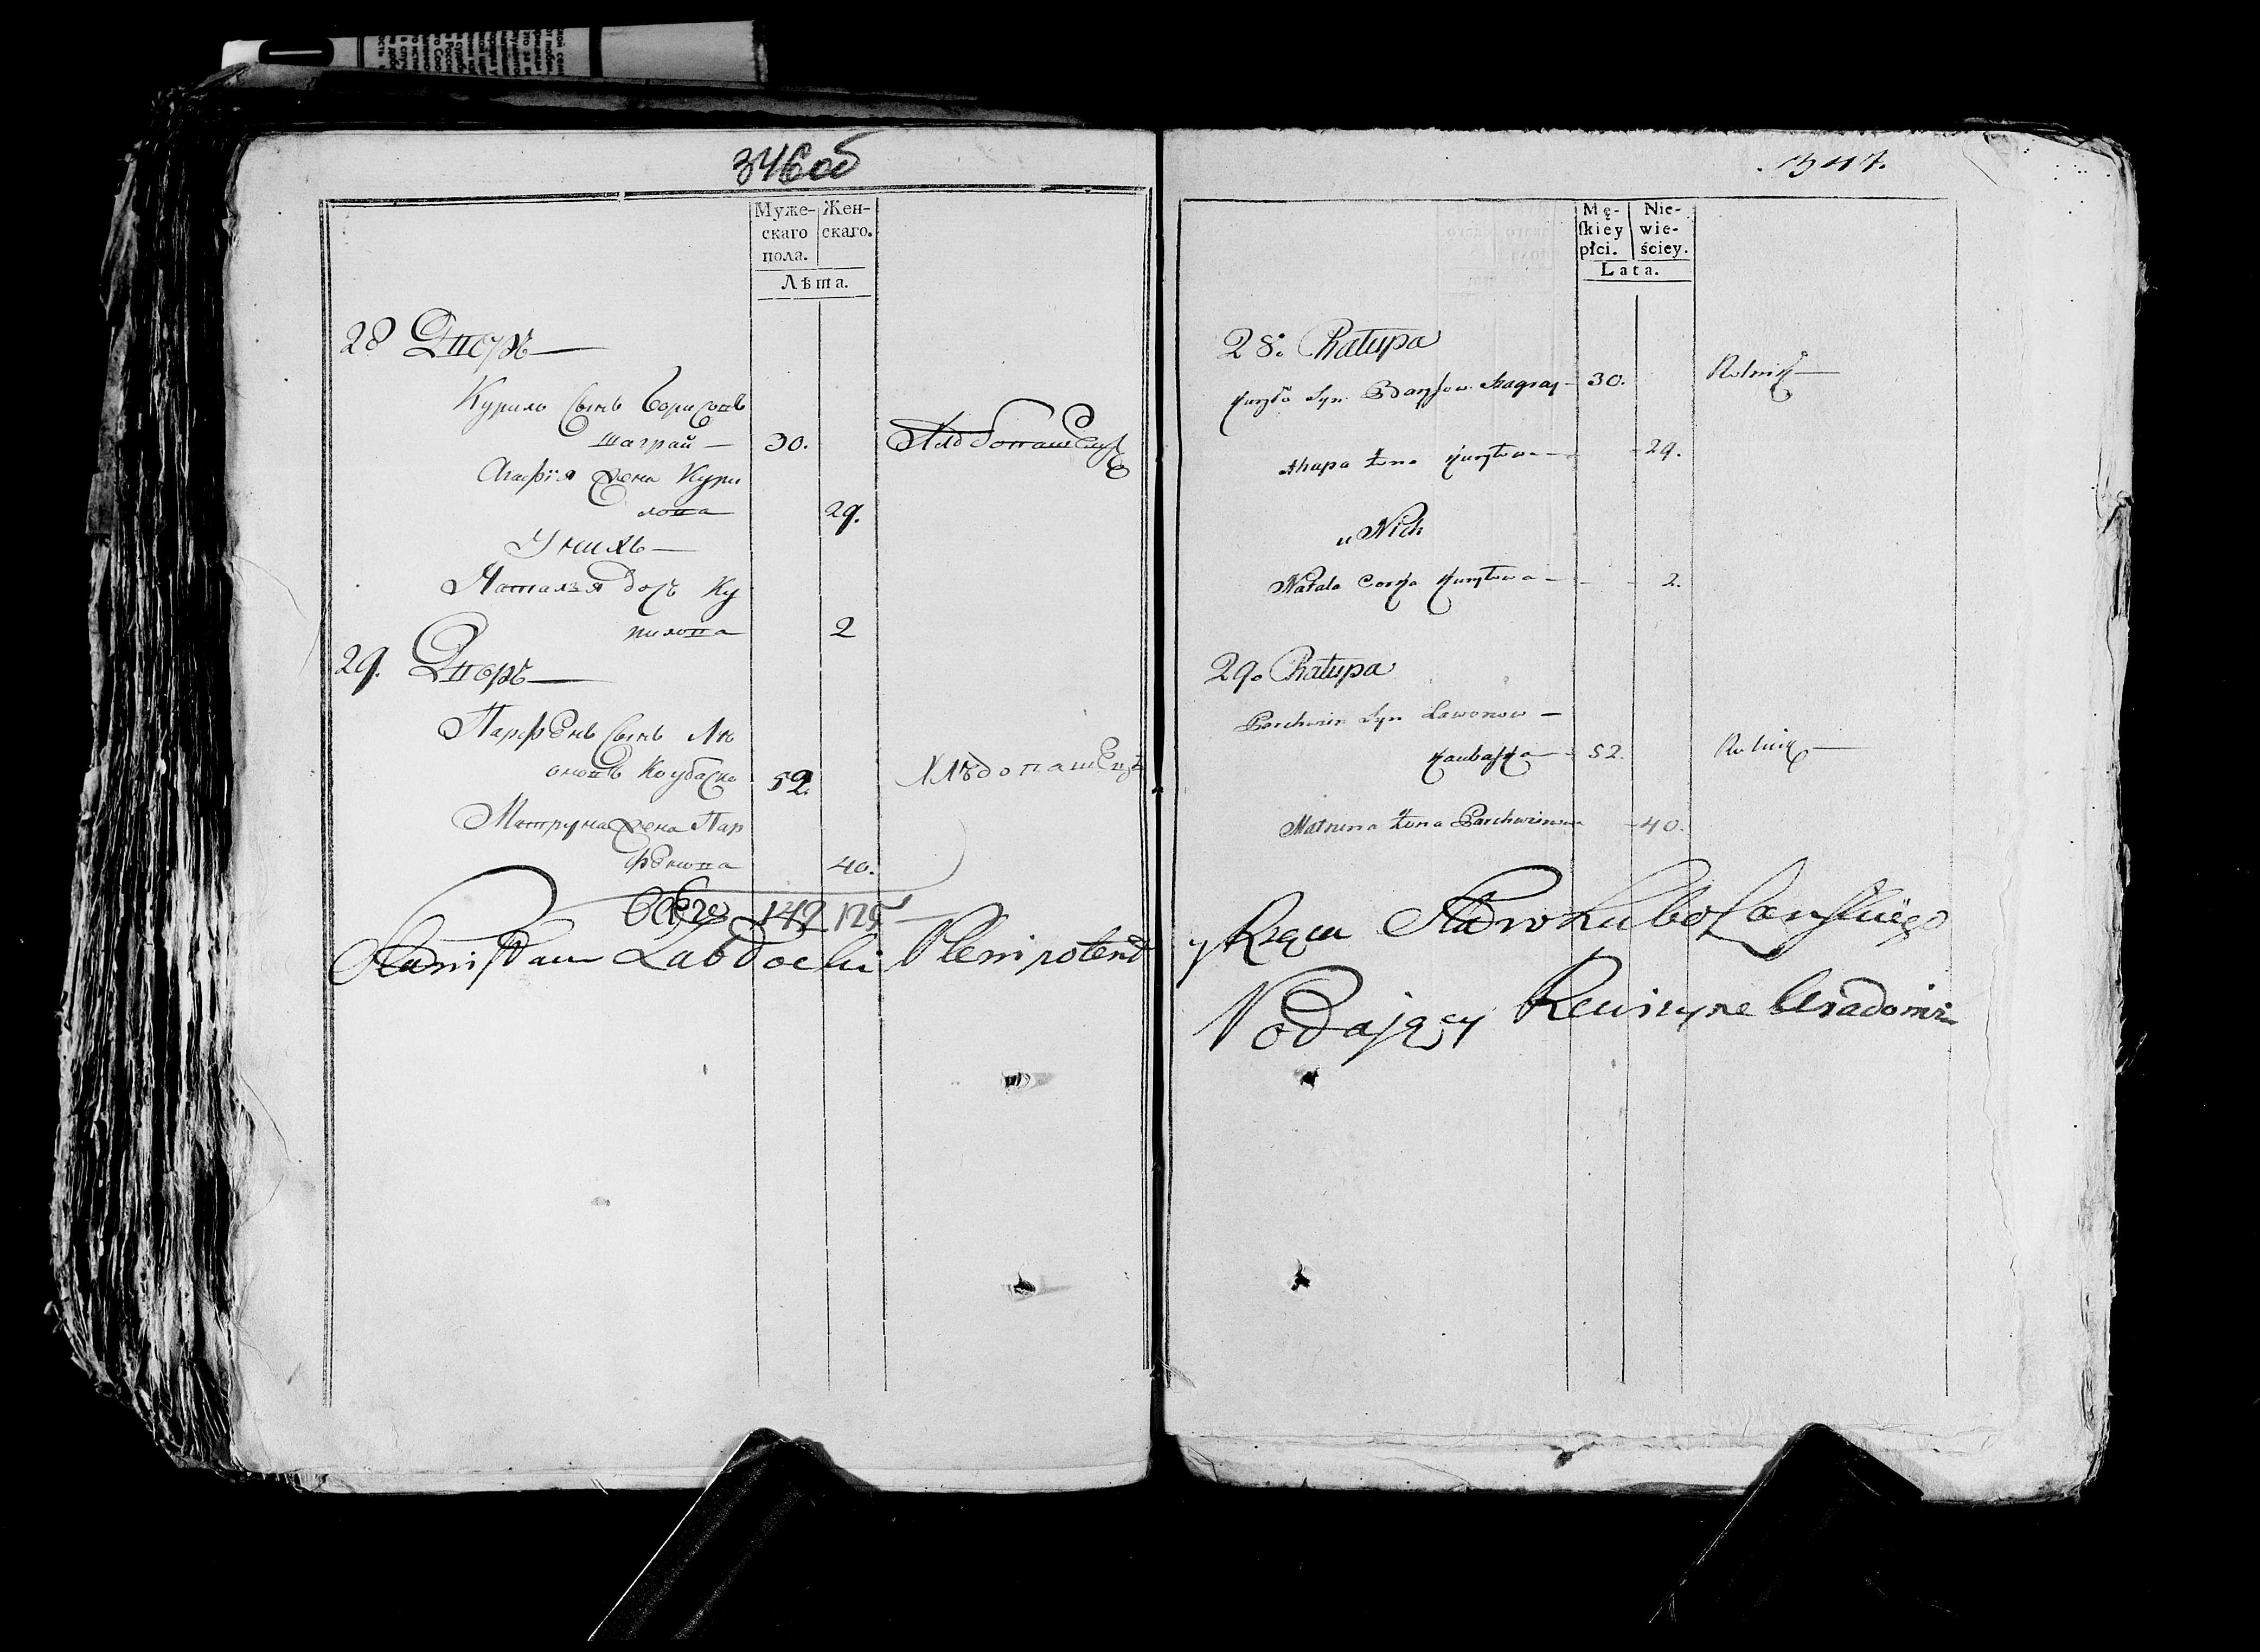 346об
Муже-
скаго
пола.
Жен-
скаго.
Лѣта.
28 Дворъ
Курило Сынъ Борисовъ
шаграй 30. Хлѣбопашецъ
Агафiя жена Кури
лова 29.
У нихъ
Наталья дочь Ку
рилова 2
29. Дворъ
Парфенъ Сынъ Ле
оновъ Коубаско 52. Хлѣбопашецъ
Матруна жена Пар
фенова 40.
142 125
Stanisław Plenipotent
347.
Mę-
ſkiey
płci.
Nie-
wie-
ściey.
Lata.
28. Chałupa
Kuryło Syn Szagray 30. Rolnik
Ahapa żona Kuryłowa 29.
u Nich
Natala Corka Kuryłowa 2.
29. Chałupa
Parchwin Syn Lawonow
Kaubaska 52. Rolnik
Matruna żona Parchwinowa 40.
Podający Rewizyne